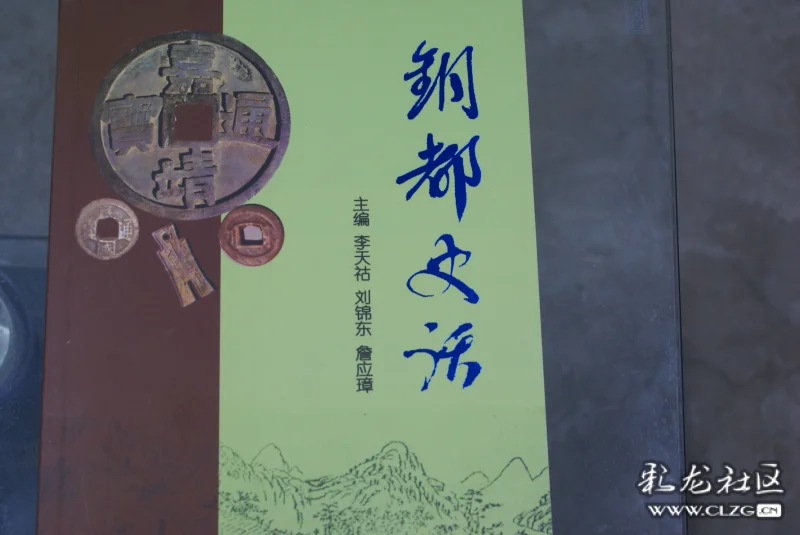 銅都史话
主编 李天祜 刘锦东 詹应璋
嘉靖通寶
彩龙社区
WWW.CLZG.CN